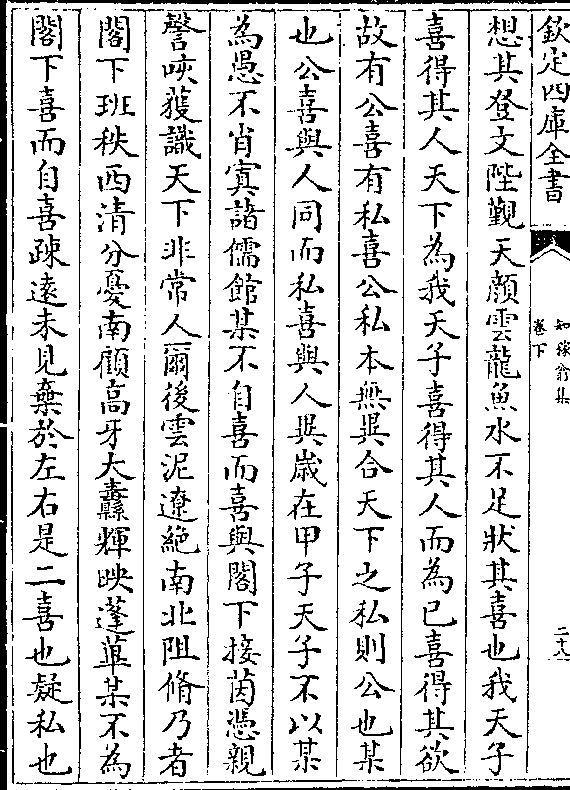 欽定四庫全書
知稼翁集
卷下
二十八
想其登文陛覲天顔雲龍魚水不足狀其喜也我天子
喜得其人天下為我天子喜得其人而為已喜得其欲
故有公喜有私喜公私本無異合天下之私則公也某
也公喜與人同而私喜與人異歲在甲子天子不以某
為愚不肖寘諸儒館某不自喜而喜與閣下接茵憑親
謦咳獲識天下非常人爾後雲泥遼絶南北阻脩乃者
閣下班秩西清分憂南顧高牙大纛輝映蓬蓽某不為
閣下喜而自喜疎遠未見棄於左右是二喜也疑私也